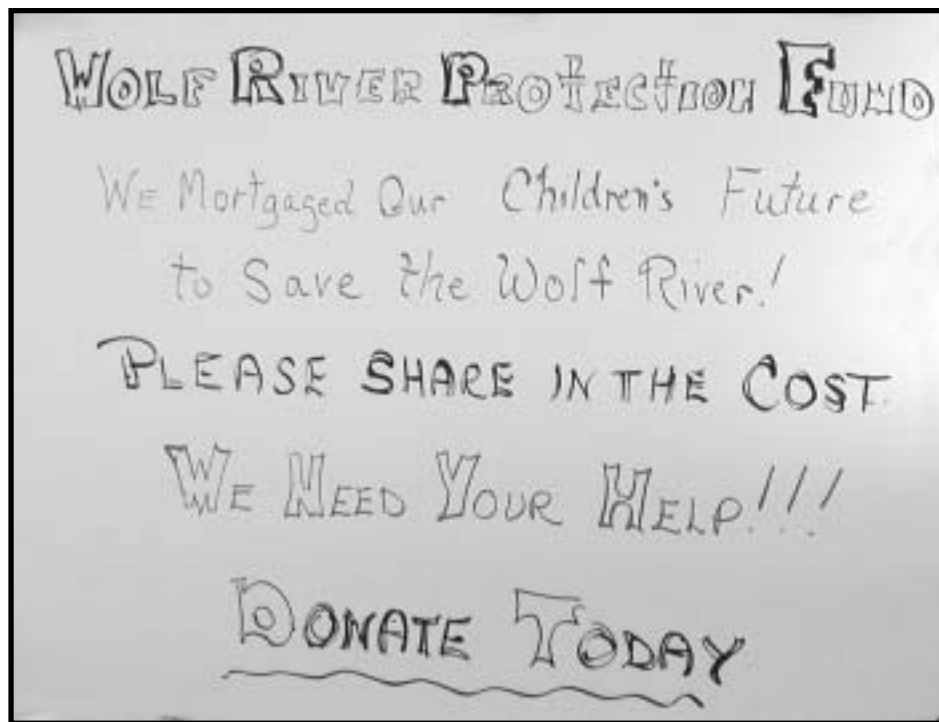 WOLF RIVER PROTECTION FUND
WE Mortgaged Our Children's Future
to Save the Wolf River!
PLEASE SHARE IN THE COST.
WE NEED YOUR HELP!!!
DONATE TODAY